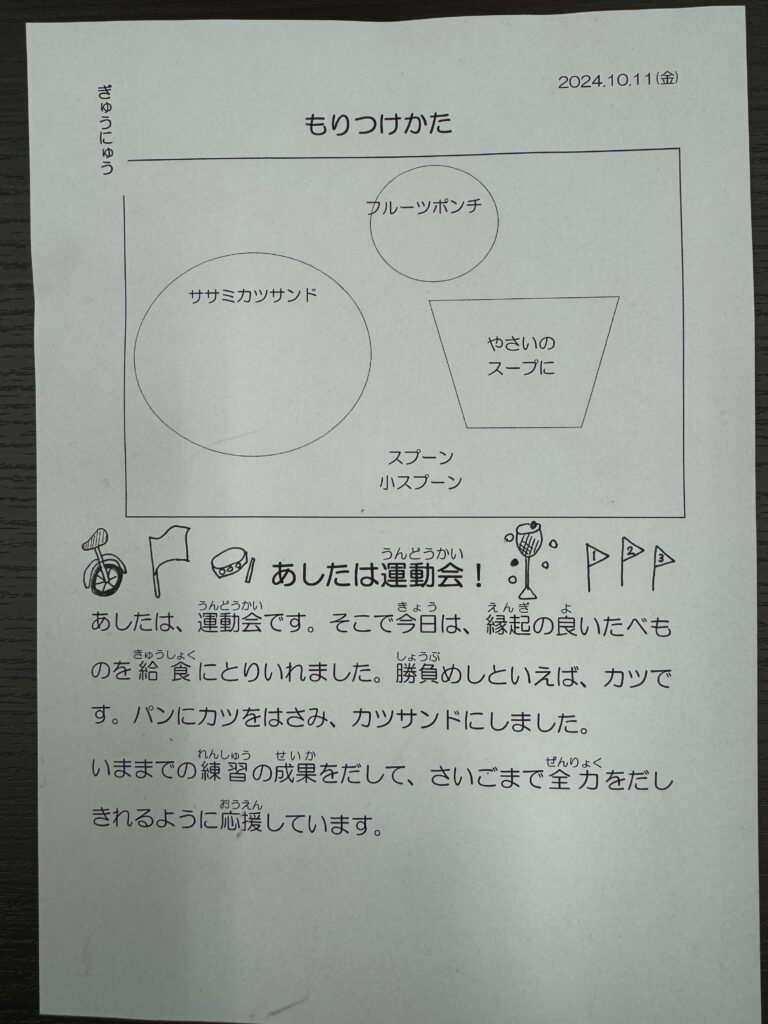 2024.10.11(金)
ぎゅうにゅう
もりつけかた
フルーツポンチ
ササミカツサンド
やさいの
スープに
スプーン
小スプーン
1 2 3
うんどうかい
あしたは運動会！
うんどうかい きょう えんぎ よ
あしたは、運動会です。そこで今日は、縁起の良いたべも
きゅうしょく しょうぶ
のを給食にとりいれました。勝負めしといえば、カツで
す。パンにカツをはさみ、カツサンドにしました。
れんしゅう せいか ぜんりょく
いままでの練習の成果をだして、さいごまで全力をだし
おうえん
きれるように応援しています。